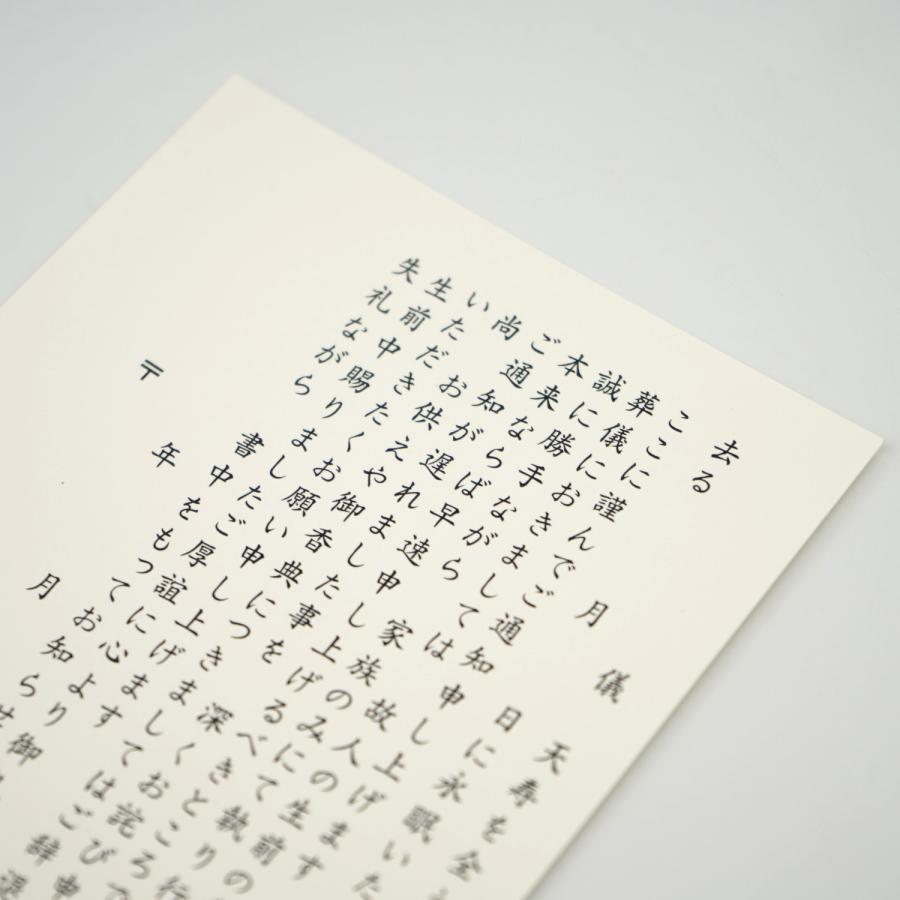 儀 天寿を全
去る 月 日に永眠いた
ここに謹んでご通知申し上げます
葬儀におきましては 故人の生前の
誠に勝手ながら 家族のみにて執り行
本来ならば早速申し上げるべきところ
ご通知が遅れました事を深くお詫び申
尚 お供えや御香典につきましてはご辞退
いただきたくお願い申し上げます
生前中賜りましたご厚誼に心より御
失礼ながら 書中をもってお知らせ
年 月
〒